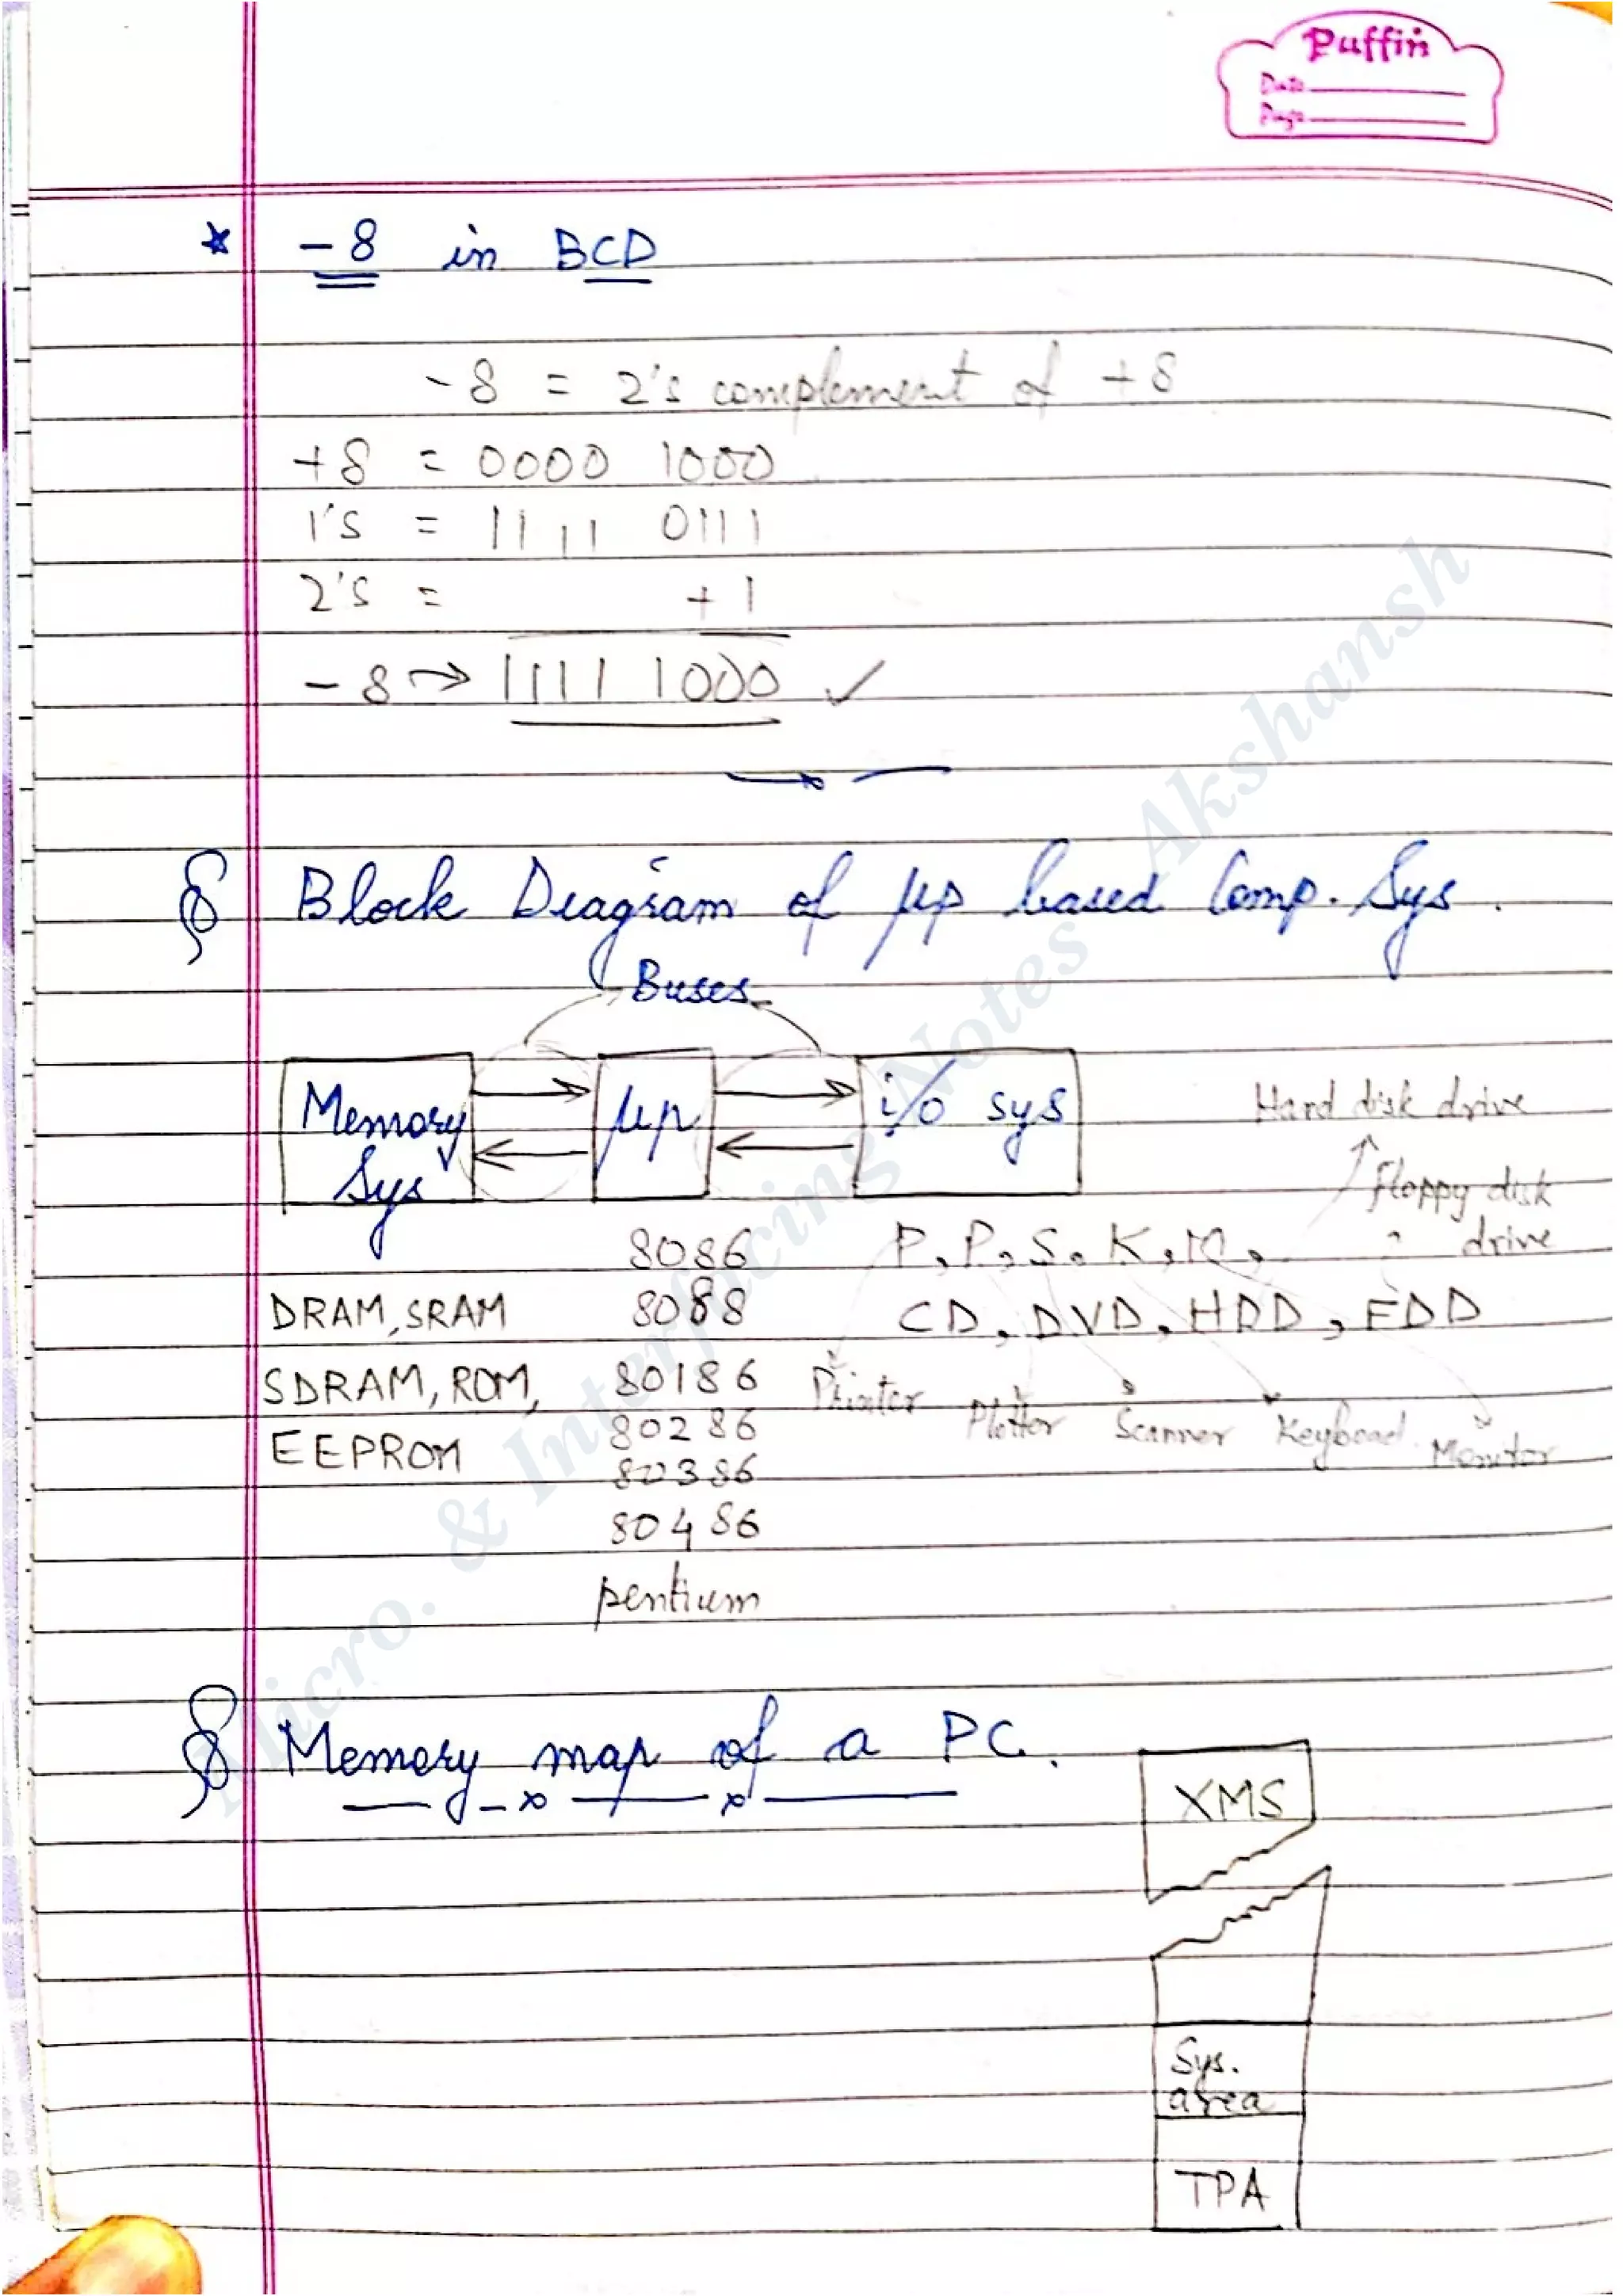 Puffin
Date
Page
* -8 in BCD
-8 = 2's complement of +8
+8 = 0000 1000
1's = 1111 0111
2's = +1
-8 → 1111 1000 ✓
§ Block Diagram of μp based Comp. Sys.
Buses
Memory Sys
μp
i/o sys
Hard disk drive
floppy disk
drive
8086 P, P, S, K, M,
DRAM, SRAM 8088 CD, DVD, HDD, FDD
SDRAM, ROM, 80186 Printer Plotter Scanner Keyboad Monitor
EEPROM 80286
80386
80486
pentium
§ Memory map of a PC.
XMS
Sys.
area
TPA
Micro. & Interfacing Notes Akshansh